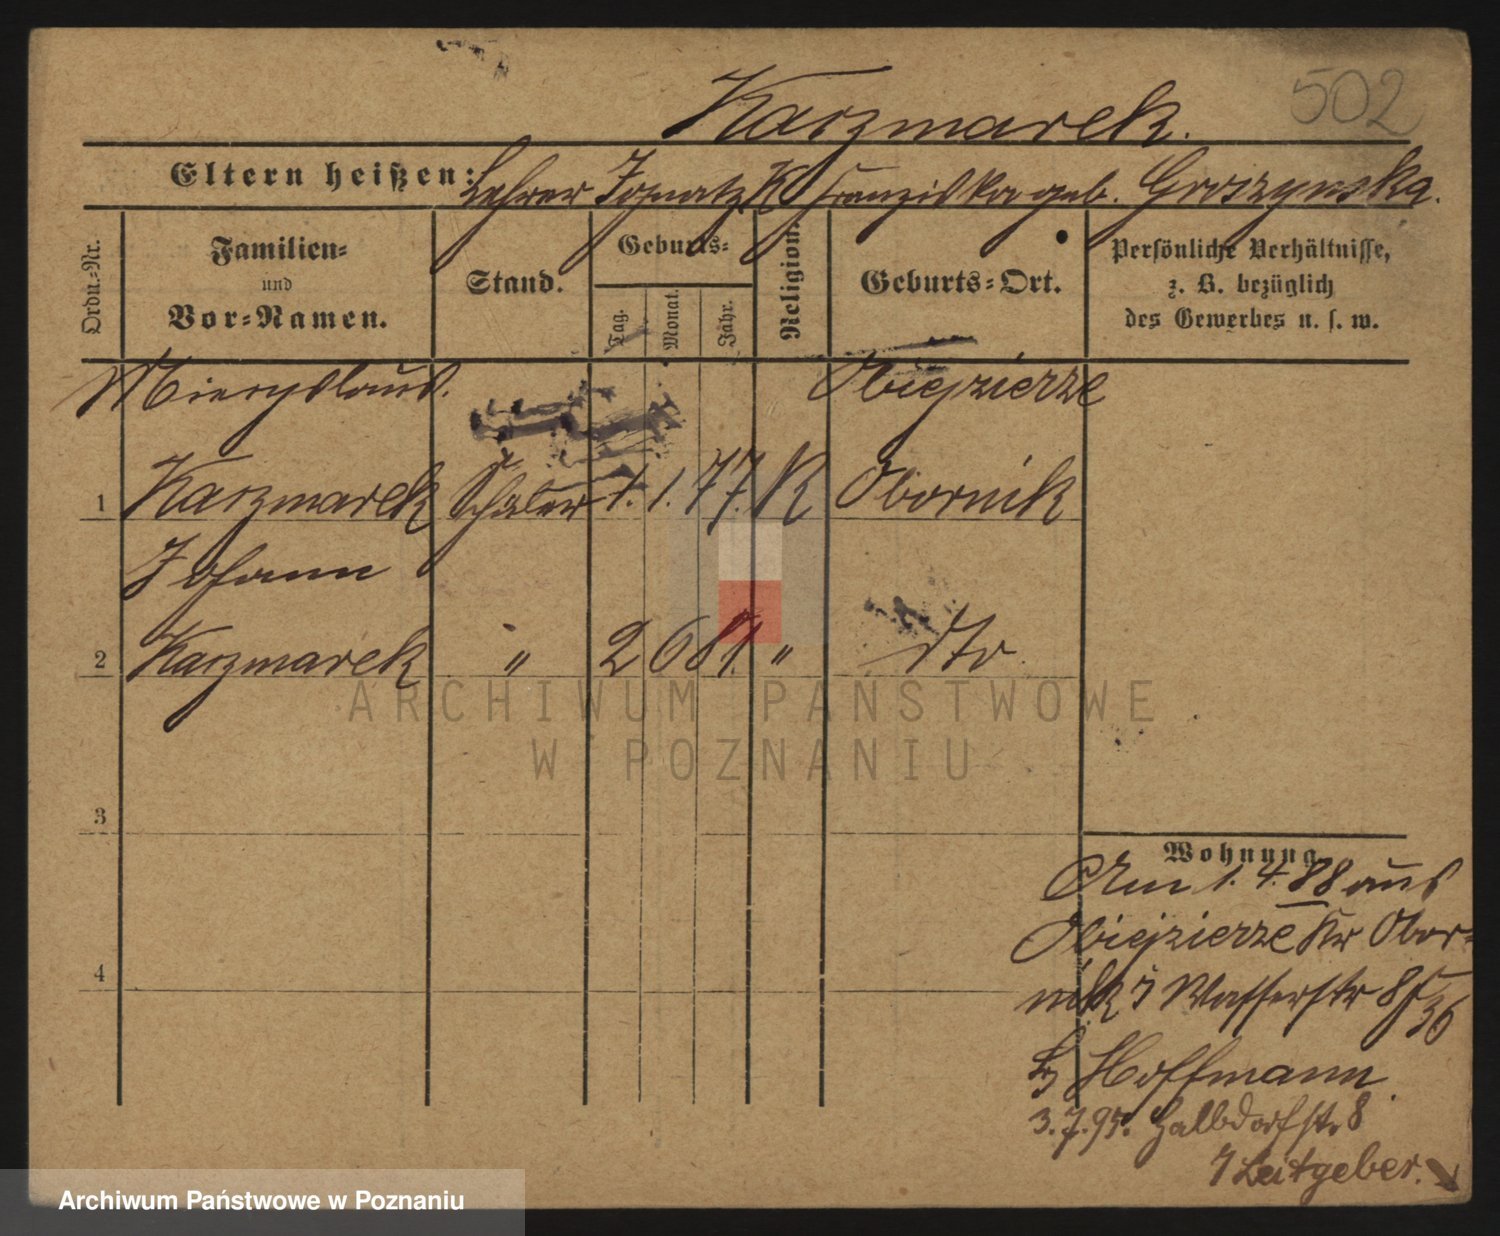 502
Karzmarek.
Eltern heißen: Lehrer Ignatz K Franziska geb. Groszynska.
Ordn.-Nr.
Familien-
und
Vor-Namen.
Stand.
Geburts-
Tag.
Monat.
Jahr.
Religion.
Geburts-Ort.
Persönliche Verhältnisse,
z. B. bezüglich
des Gewerbes u. s. w.
Miecyslaus. Obiejzierze
1 Karzmarek Schüler 1. 1. 77. K Obornik
Johann
2 Karzmarek " 2 6 81. " dto
3
4
Wohnung.
Am 1. 4. 88 aus
Obiejzierze Kr Obor-
nik Wasserstr
b Hoffmann.
3.7.95. Halbdorfstr 8
Leitgeber.
ARCHIWUM PAŃSTWOWE
W POZNANIU
Archiwum Państwowe w Poznaniu